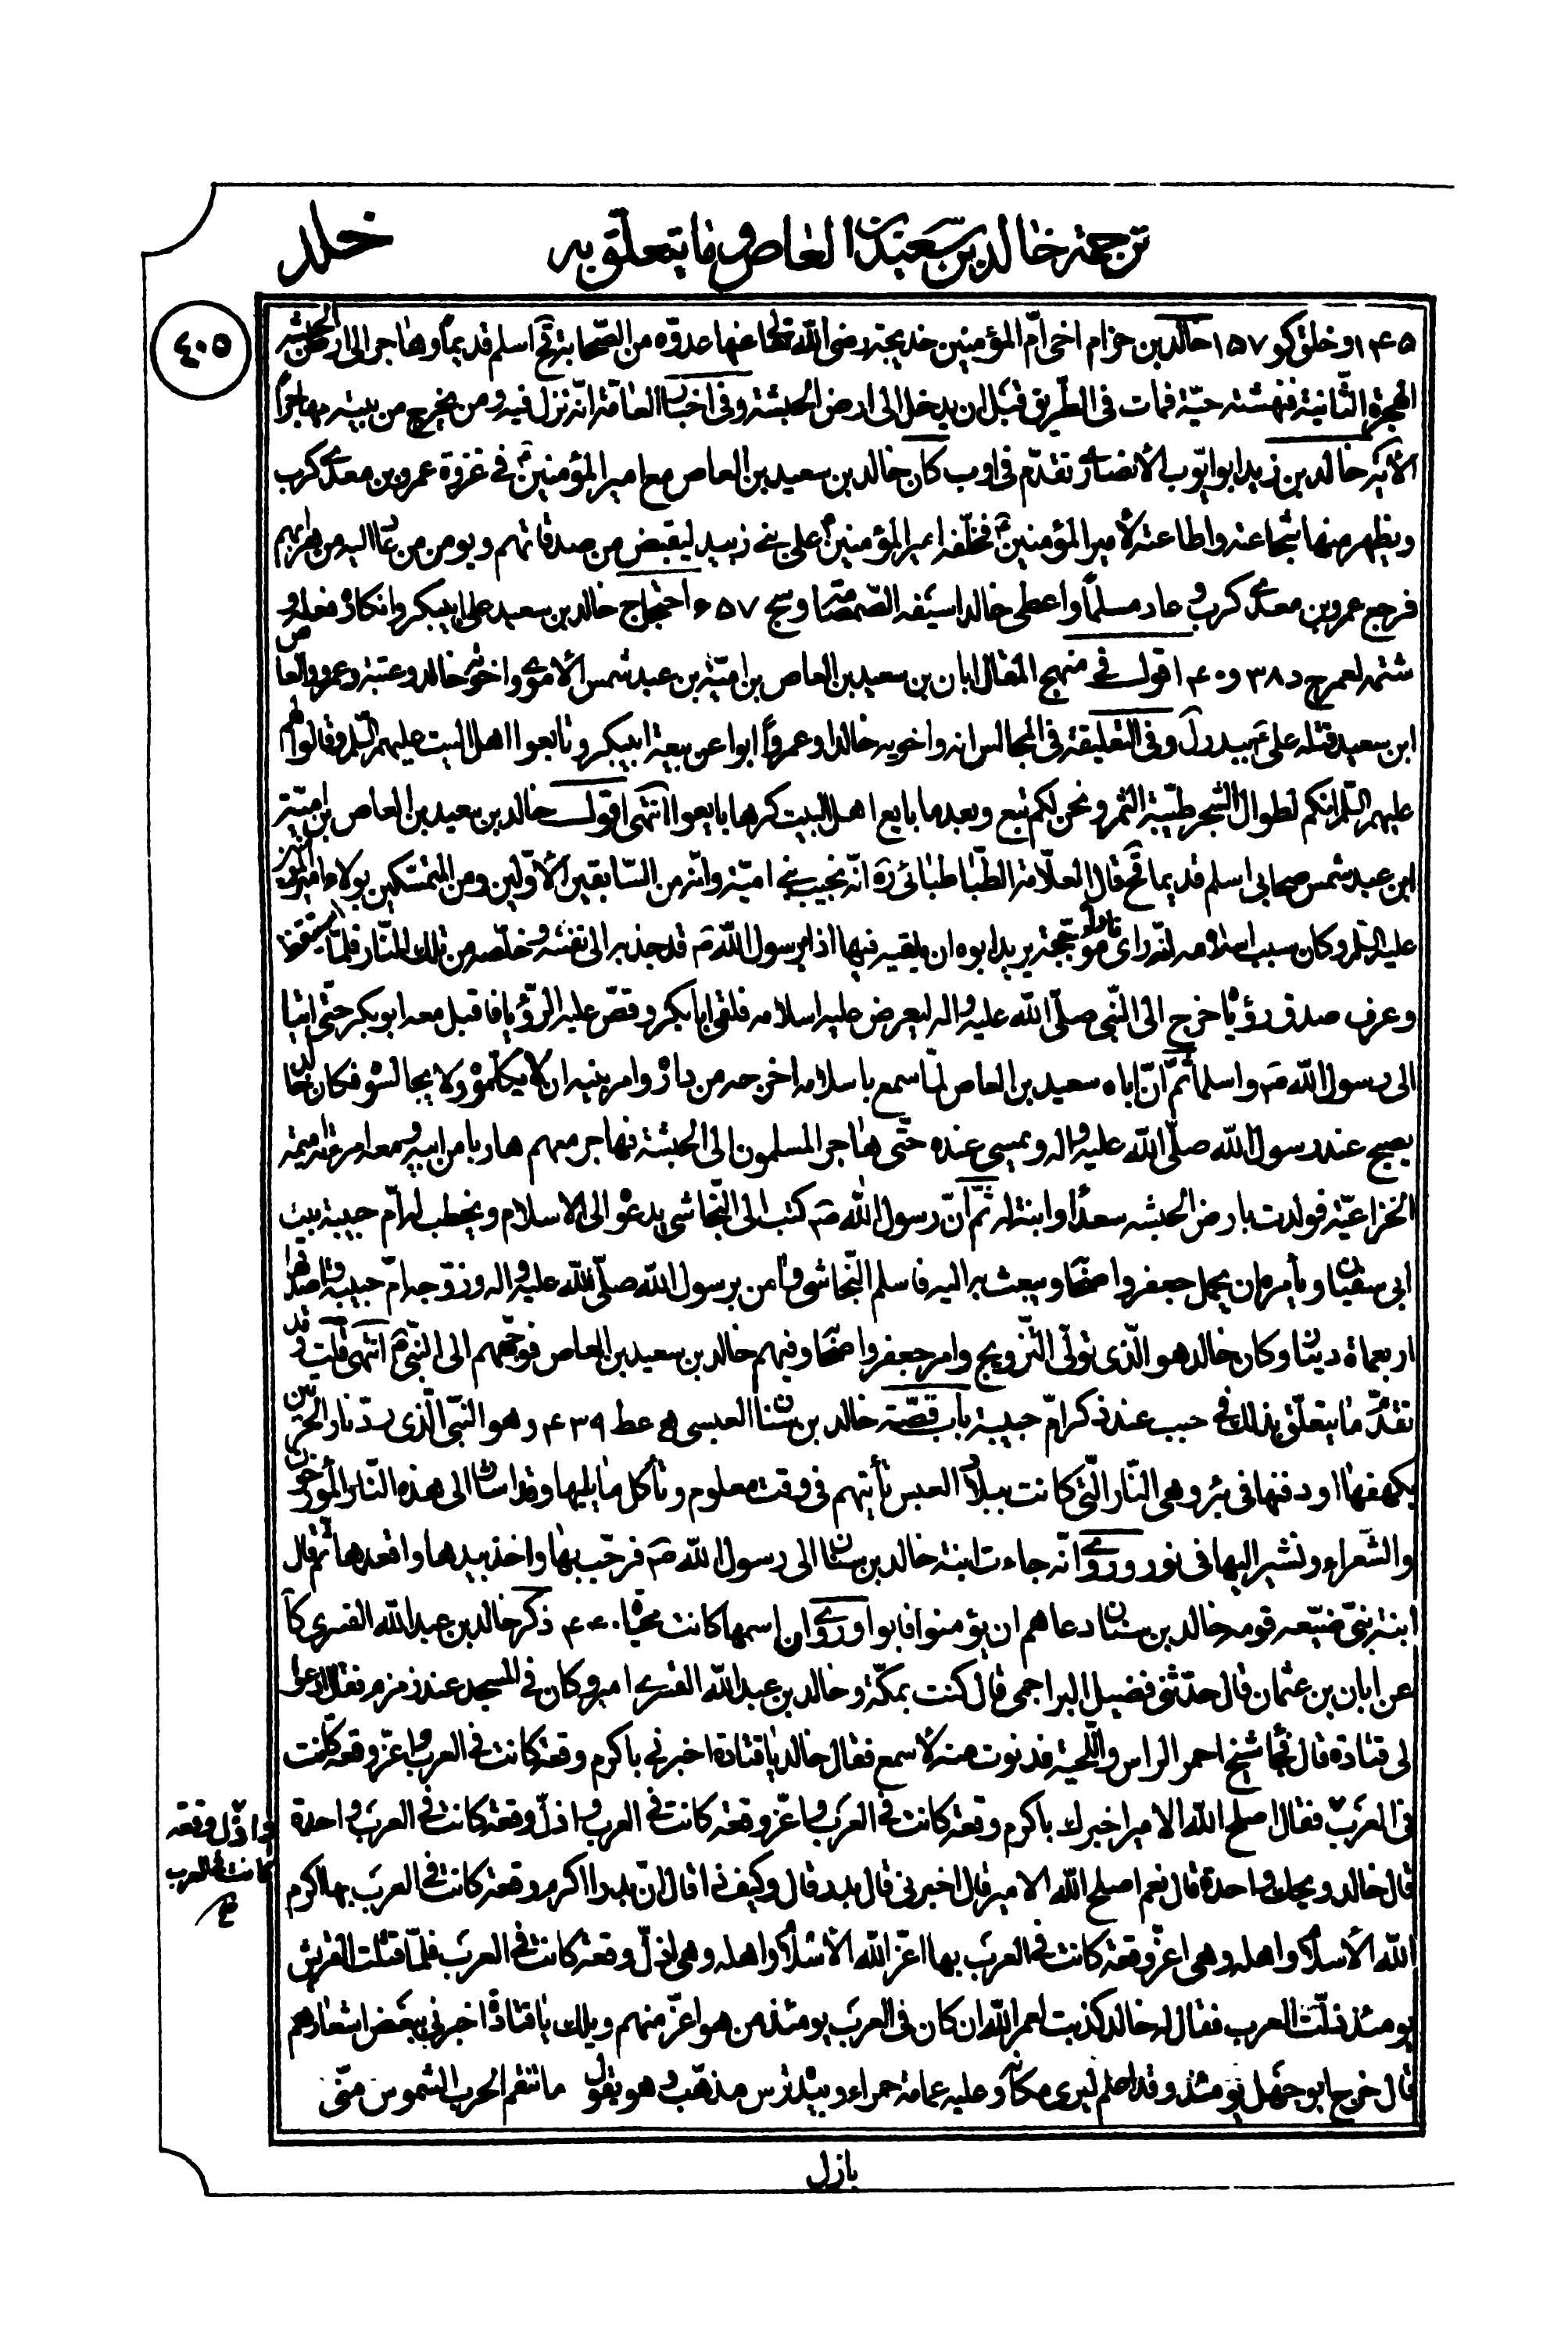 ترجمة خالد بن سعيد بن العاص وما يتعلق به
خلد
٤٠٥
١٤٥ وخلق كو ١٥٧ خالد بن حزام اخى امّ المؤمنين خديجة رضى الله تعالى عنها عدوّه من الصّحابة قح اسلم قديماً وهاجر الى ارض الحبشة
الهجرة الثّانية فنهشته حيّة فمات فى الطّريق قبل ان يدخل الى ارض الحبشة وفى اخبار العامّة انّه نزل فيه ومن يخرج من بيته مهاجراً
الآية خالد بن زيد ابو ايّوب الأنصارى تقدّم فى اوب كان خالد بن سعيد بن العاص مع امير المؤمنين ع فى غزوة عمرو بن معدى كرب
ويظهر منها شجاعته واطاعته لأمير المؤمنين ع فخلّفه امير المؤمنين ع على بنى زبيد ليقبض من صدقاتهم ويومن من عاد اليه من هرابهم
فرجع عمرو بن معدى كرب وعاد مسلماً واعطى خالدا سيفه الصّمصامة وسج ٦٥٧ احتجاج خالد بن سعيد على ابيبكر وانكاره فعله و
شتمه لعمر ج د ٣٨ و ٤٠ اقول فى منهج المقال ابان بن سعيد بن العاص بن اميّة بن عبد شمس الأموى واخوته خالد وعتبة وعمرو والعاص
ابن سعيد قتله على ع ببدر ل وفى التعليقة فى المجالس انه واخويه خالدا وعمرواً ابوا عن بيعة ابيبكر وتابعوا اهل البيت عليهم السّلم وقالوا لهم
عليهم السّلم انكم لطوال الشجر طيّبة الثمر ونحن لكم تبع وبعد ما بايع اهل البيت كرها بايعوا انتهى اقول خالد بن سعيد بن العاص بن اميّة
ابن عبد شمس صحابى اسلم قديما قح قال العلّامة الطّباطبائى ره انّه نجيب بنى اميّة وانّه من السّابقين الأوّلين ومن المتمسّكين بولاء امير المؤمنين
عليه السّلم وكان سبب اسلامه انّه راى ناراً مؤجّجة يريد ابوه ان يلقيه فيها اذا برسول الله ص قد جذبه الى نفسه وخلّصه من تلك النّار فلمّا استيقظ
وعرف صدق رؤياه خرج الى النّبى صلّى الله عليه واله ليعرض عليه اسلامه فلقى ابابكر وقصّ عليه الرّؤيا فاقبل معه ابو بكر حتّى اتيا
الى رسول الله ص واسلما ثمّ انّ اباه سعيد بن العاص لمّا سمع باسلامه اخرجه من داره وامر بنيه ان لا يكلّموه ولا يجالسوه فكان خالد
يصبح عند رسول الله صلّى الله عليه واله ويمسى عنده حتّى هاجر المسلمون الى الحبشة فهاجر معهم هاربا من ابيه ومعه امرءته اميمة
الخزاعيّة فولدت بارض الحبشه سعداً وابنة له ثمّ انّ رسول الله ص كتب الى النّجاشى يدعوه الى الاسلام ويخطب له امّ حبيبة بنت
ابى سفيان ويأمره ان يحمل جعفر واصحابه ويبعث به اليه فاسلم النّجاشى وامن برسول الله صلّى الله عليه واله وزوّجه امّ حبيبة واصدقها
اربعمأة دينار وكان خالد هو الّذى تولّى التّزويج وامر جعفر واصحابه وفيهم خالد بن سعيد بن العاص فوجّههم الى النّبى ص انتهى قلت وقد
تقدّم ما يتعلّق بذلك فى حبب عند ذكر امّ حبيبة باب قصّة خالد بن سنان العبسى ه عط ٤٣٩ وهو النبّى الّذى ردّ نار الحرّتين
بكهفها او دفنها فى بئر وهى النّار الّتى كانت ببلاد العبس تأتيهم فى وقت معلوم وتأكل ما يليها وقد اشار الى هذه النّار المؤرّخون
والشّعراء ونشير اليها فى نور وروى انّه جاءت ابنة خالد بن سنان الى رسول الله ص فرحّب بها واخذ بيدها واقعدها ثم قال
ابنة نبىّ ضيّعه قومه خالد بن سنان دعاهم ان يؤمنوا فابوا وروى ان اسمها كانت محيّاه ٤٤٠ ذكر خالد بن عبد الله القسرى كا
عن ابان بن عثمان قال حدّثنى فضيل البراجمى قال كنت بمكّة وخالد بن عبد الله القسرى امير وكان فى المسجد عند زمزم فقال ادعوا
لى قتادة قال فجاء شيخ احمر الراس واللّحية فدنوت منه لأسمع فقال خالد يا قتادة اخبرنى باكرم وقعة كانت فى العرب واعزّ وقعة كانت
فى العرب فقال اصلح الله الامير اخبرك باكرم وقعة كانت فى العرب واعزّ وقعة كانت فى العرب واذلّ وقعة كانت فى العرب واحدة
واذلّ وقعه
كانت فى العرب
صح
قال خالد ويحك واحدة قال نعم اصلح الله الامير قال اخبرنى قال بدر قال وكيف ذا قال انّ بدرا اكرم وقعة كانت فى العرب بها اكرم
الله الأسلام واهله وهى اعزّ وقعة كانت فى العرب بها اعزّ الله الأسلام واهله وهى اذلّ وقعة كانت فى العرب فلمّا قتلت القريش
يومئذ ذلّت العرب فقال له خالد كذبت لعمر الله ان كان فى العرب يومئذ من هو اعزّ منهم ويلك يا قتادة اخبرنى ببعض اشعارهم
قال خرج ابو جهل يومئذ وقد اعلم ليرى مكانه وعليه عمامة حمراء وبيده ترس مذهّب وهو يقول ما تنقم الحرب الشموس منّى
بازل